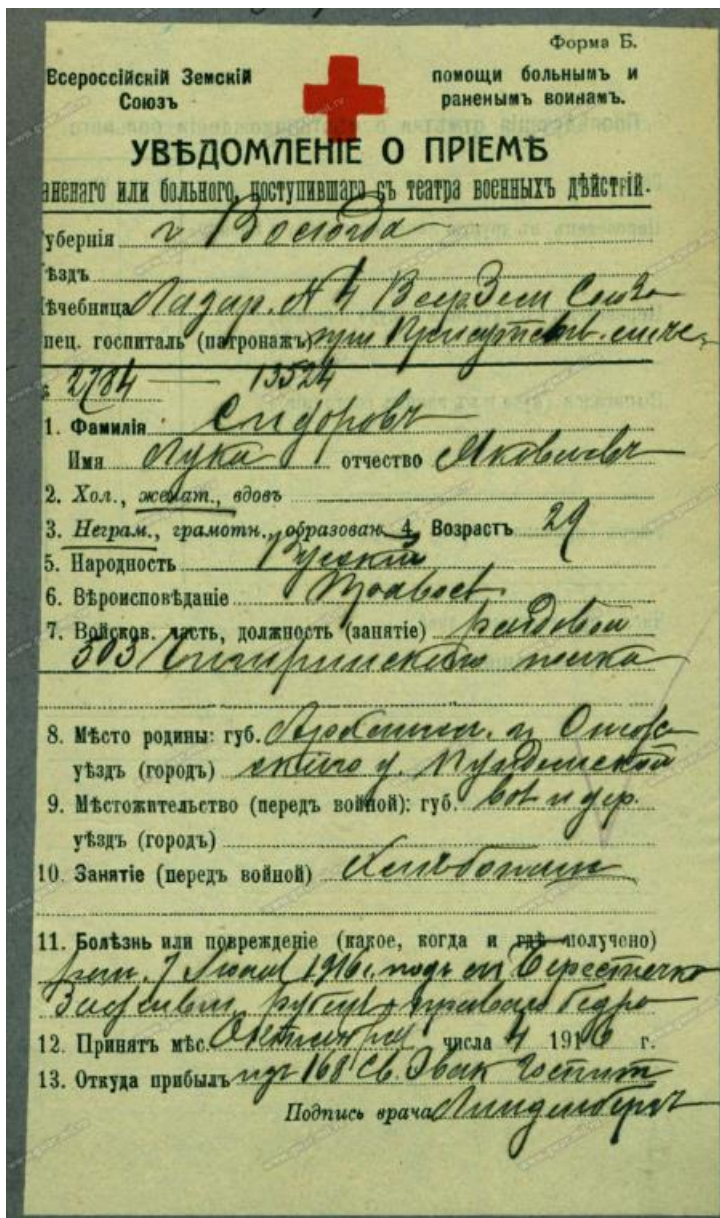 Форма Б.
Всероссійскій Земскій
Союзъ
помощи больнымъ и
раненымъ воинамъ.
УВѢДОМЛЕНІЕ О ПРІЕМѢ
аненаго или больного, поступившаго съ театра военныхъ дѣйствій.
убернія г Вологда
ѣздъ
ѣчебница Лазар. № 1 Всер Зем Союза
пец. госпиталь (патронажъ) при
2784 — 13524
1. Фамилія Сидоровъ
Имя Лука отчество Яковлевъ
2. Хол., женат., вдовъ
3. Неграм., грамотн., образован. 4. Возрастъ 29
5. Народность Русскій
6. Вѣроисповѣданіе Правосл
7. Войсков. часть, должность (занятіе) рядовой
303 полка
8. Мѣсто родины: губ.
уѣздъ (городъ)
9. Мѣстожительство (передъ войной): губ. Вол и дер.
уѣздъ (городъ)
10. Занятіе (передъ войной) Хлѣбопаш
11. Болѣзнь или поврежденіе (какое, когда и гдѣ получено)
ран. 7 1916 г. подъ м. Берестечко
рубецъ праваго бедра
12. Принятъ мѣс. Октября числа 4 1916 г.
13. Откуда прибылъ изъ 168 Св. Эвак Госпит
Подпись врача Линденбергъ